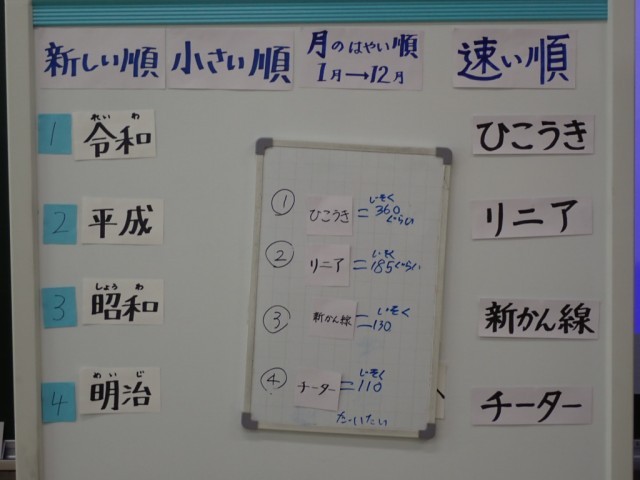 新しい順
小さい順
月のはやい順
1月→12月
速い順
1
れいわ
令和
2
平成
3
しょうわ
昭和
4
めいじ
明治
① ひこうき = じそく 360 ぐらい
② リニア = じそく 185ぐらい
③ 新かん線 = じそく 130
④ チーター = じそく 110
だいたい
ひこうき
リニア
新かん線
チーター